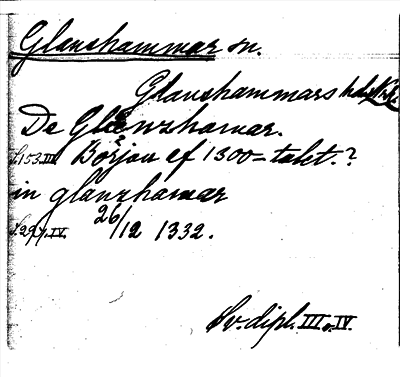 Glanshammar sn.
Glanshammars hd, Nke.
De Glænzhamar.
S. 153. III. Början af 1300-talet.?
in glanzhamar
S. 297. IV. 26/12 1332.
Sv. dipl. III o. IV.